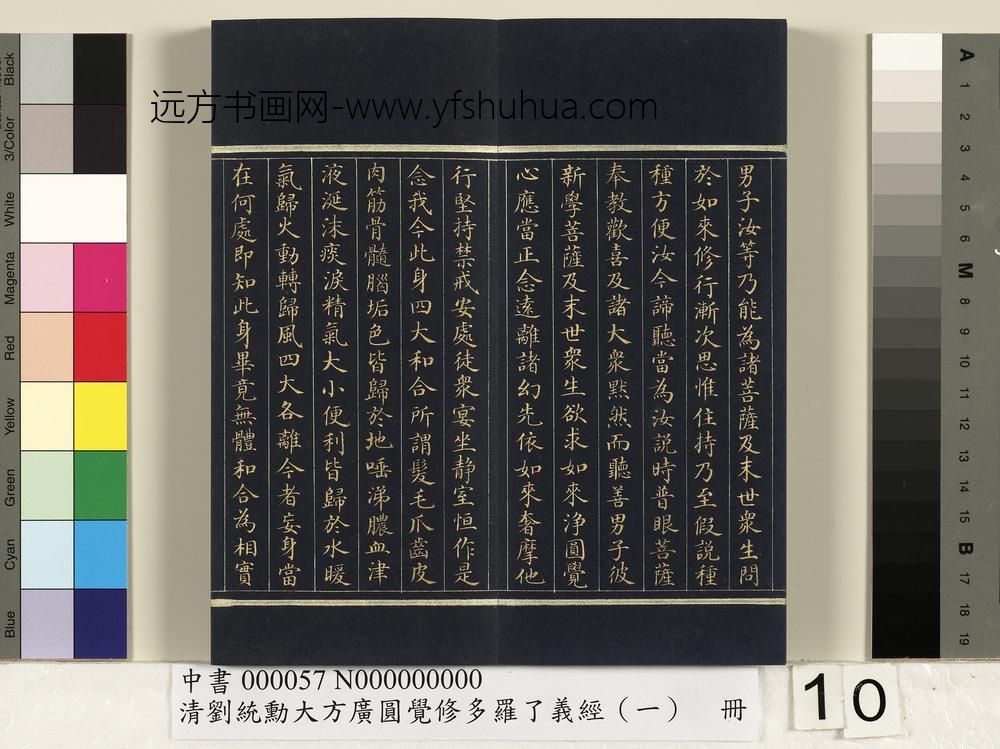 远方书画网-www.yfshuhua.com
男子汝等乃能為諸菩薩及末世衆生問
於如來修行漸次思惟住持乃至假說種
種方便汝今諦聽當為汝說時普眼菩薩
奉教歡喜及諸大衆黙然而聽善男子彼
新學菩薩及末世衆生欲求如來淨圓覺
心應當正念遠離諸幻先依如來奢摩他
行堅持禁戒安處徒衆宴坐静室恒作是
念我今此身四大和合所謂髮毛爪齒皮
肉筋骨髓腦垢色皆歸於地唾涕膿血津
液涎沫痰淚精氣大小便利皆歸於水暖
氣歸火動轉歸風四大各離今者妄身當
在何處即知此身畢竟無體和合為相實
Black
3/Color
White
Magenta
Red
Yellow
Green
Cyan
Blue
A
1
2
3
4
5
6
M
8
9
10
11
12
13
14
15
B
17
18
19
中書 000057 N000000000
清劉統勳大方廣圓覺修多羅了義經（一） 冊
10